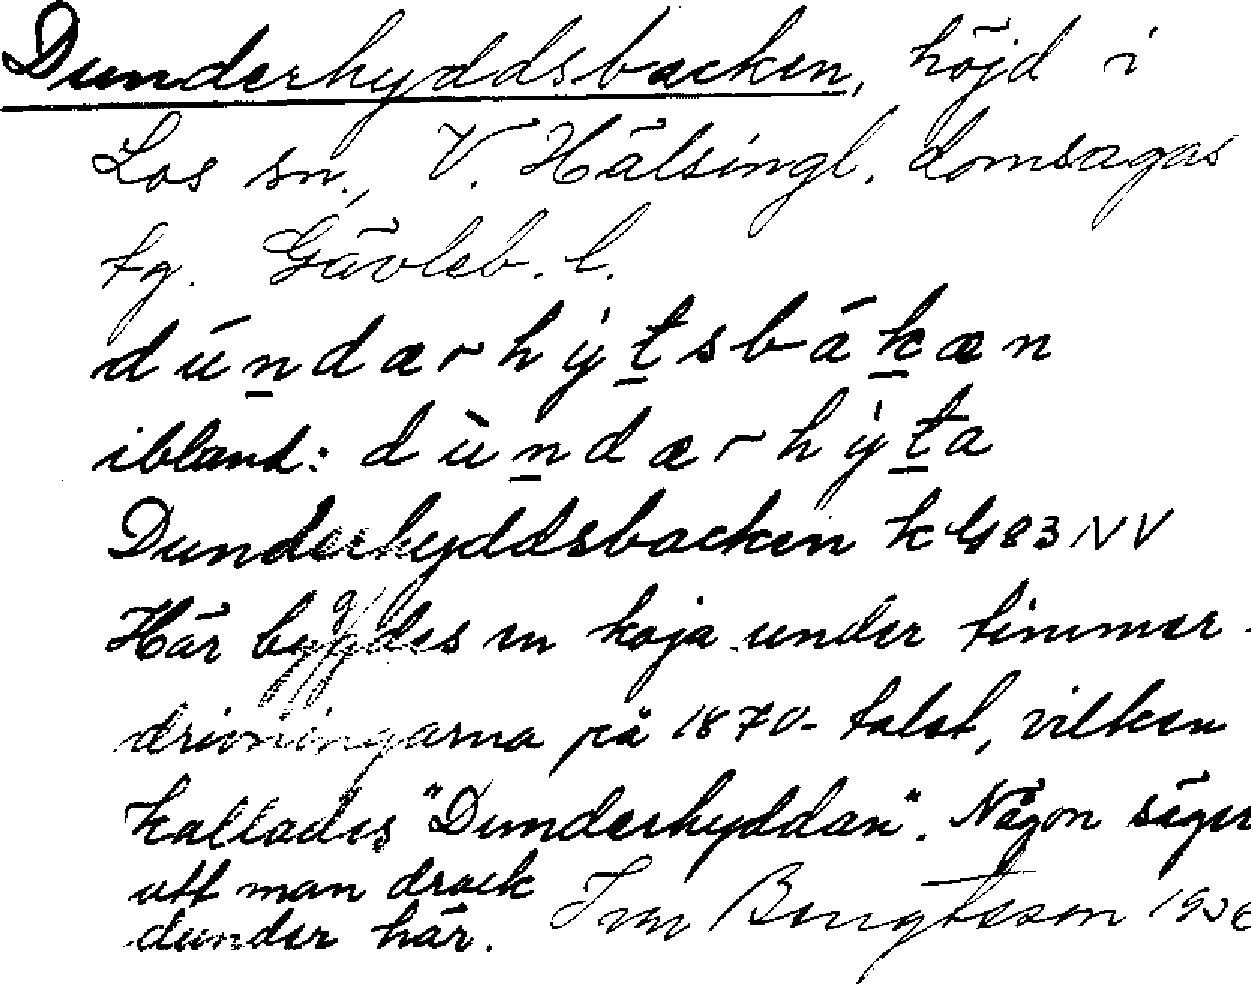 Dunderhyddsbacken, höjd i
Los sn., V. Hälsingl. domsagas
tg. Gävleb. l.
dúndærhýtsbákæn
ibland: dùndærhýta
Dunderhyddsbacken k G83 NV
Här byggdes en koja under timmer-
drivningarna på 1870-talet, vilken
kallades "Dunderhyddan". Någon säger
att man drack
dunder här. Bengtsson